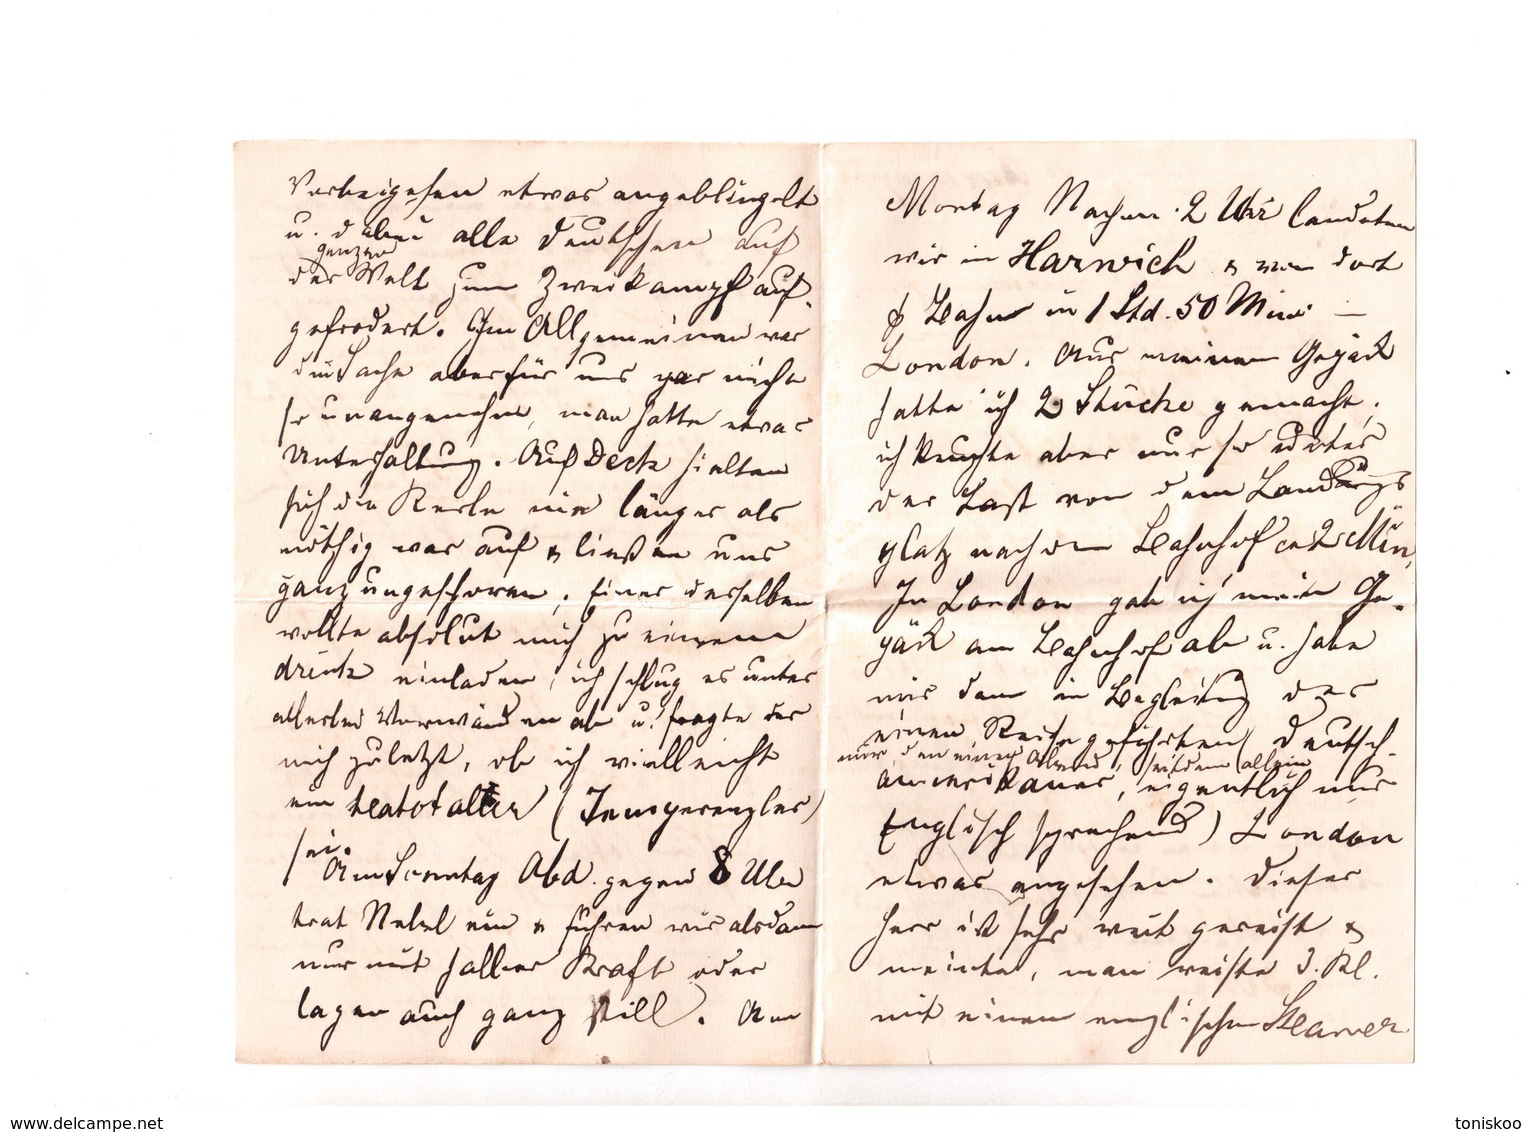 Vorbeigehen etwas angeblinzelt
u. dabei alle Deutschen auf
ganzen
der Welt zum Zweikampf auf-
gefordert. Im Allgemeinen war
die Sache aber für uns gar nicht
so unangenehm, man hatte etwas
Unterhaltung. Auf Deck hielten
sich die Kerle nie länger als
nöthig war auf & ließen uns
ganz ungeschoren. Einer derselben
wollte absolut mich zu einem
drink einladen, ich schlug es unter
allerlei Vorwänden ab u. fragte der
mich zuletzt, ob ich vielleicht
ein teatotaller (Temperenzler)
sei.
Am Sonntag Abd. gegen 8 Uhr
trat Nebel ein & führen wir alsdann
nur mit halber Kraft oder
lagen auch ganz still. Am
Montag Nachm. 2 Uhr landeten
wir in Harwich & von dort
p Bahn in 1 Std. 50 Min. —
London. Aus meinem Gepäck
hatte ich 2 Stücke gemacht,
ich keuchte aber nur so unter
der Last von dem Landungs
platz nach dem Bahnhof ca 2 Min.
In London gab ich mein Ge-
päck am Bahnhof ab u. habe
mir dann in Begleitung des
einen Reisegefährten (Deutsch-
nur den einen Abend, seitdem allein
amerikaner, eigentlich nur
Englisch sprechend) London
etwas angesehen. Dieser
Herr ist sehr weit gereist &
meinte, man reiste 3. Kl.
mit einem englischen Steamer
www.delcampe.net
toniskoo